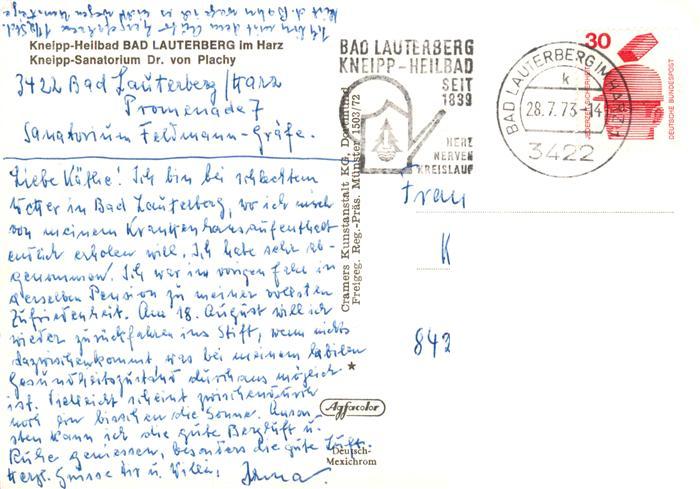 Kneipp-Heilbad BAD LAUTERBERG im Harz
Kneipp-Sanatorium Dr. von Plachy
3422 Bad Lauterberg/Harz
Promenade 7
Sanatorium Feldmann-Gräfe.
Liebe Käthe! Ich bin bei schlechtem
in Bad Lauterberg, wo ich mich
von meinem Krankenhausaufenthalt
endlich erholen will. Ich habe sehr ab-
genommen. Ich war im vorigen Jahr in
derselben Pension zu meiner vollsten
Zufriedenheit. Am 18. August will ich
wieder zurückfahren ins Stift, wenn nichts
dazwischenkommt was bei meinem labilen
Gesundheitszustand durchaus möglich
ist. Vielleicht scheint zwischendurch
noch ein bisschen die Sonne. Anson-
sten kann ich die gute Bergluft u.
Ruhe geniessen, besonders die gute Luft.
Herzl. Grüsse Dir u. Irma.
BAD LAUTERBERG
KNEIPP-HEILBAD
SEIT
1839
HERZ
NERVEN
KREISLAUF
BAD LAUTERBERG IM HARZ
k
28.7.73-14
3422
30
DEUTSCHE BUNDESPOST
Cramers Kunstanstalt KG, Dortmund
Freigeg. Reg.-Präs. Münster 1503/72
Frau
K
842
Agfacolor
Deutsch-
Mexichrom